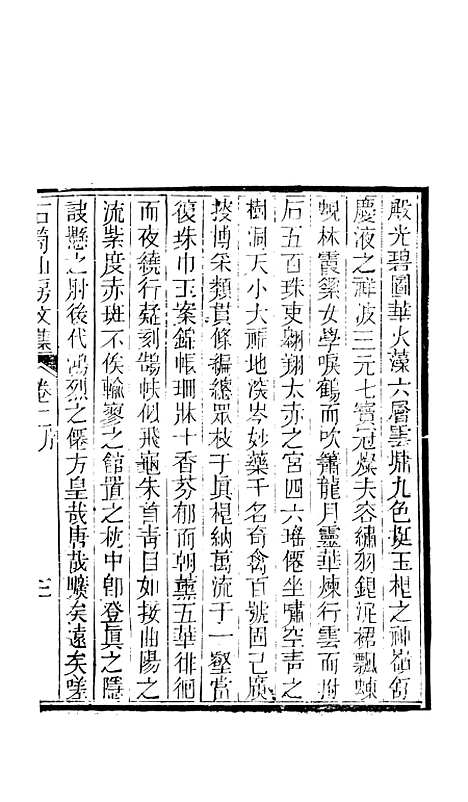 殿光碧圓華火藻六層雲鼎九色挺玉柜之神嶺宿
慶液之祥波三元七寶冠燦夫容繡羽銀泥裙飄蛺
蜺林霞鎵女學唳鶴而吹簫龍月靈華煉行雲而拊
石五百珠東翱翔太赤之宮四六瑤僊坐嘯空青之
樹洞天小大神地深岑妙藥千名奇禽百號固己廣
搜博采類貫條編總眾枝于真柜納萬流于一壑當
復珠巾玉案錦帳珊牀十香芬郁而朝薰五華徘徊
而夜繞行疑刻鵠帙似飛龜朱首青目如披曲陽之
流紫度赤斑不俟輸寥之館置之枕中卽登真之隱
訣懸之肘後代鴻烈之僊方皇哉唐哉曠矣遠矣嗟
石笥山房文集 卷二序 三